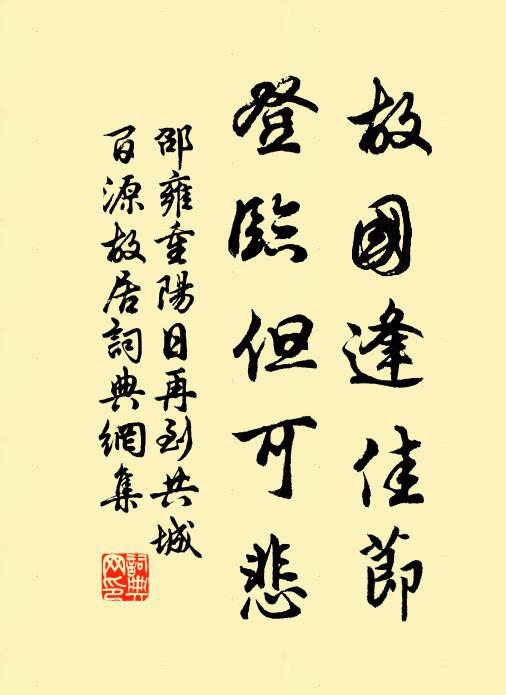 故國逢佳節
登臨但可悲
邵雍重陽日再到共城
百源故居詞典網集
詞典
网印